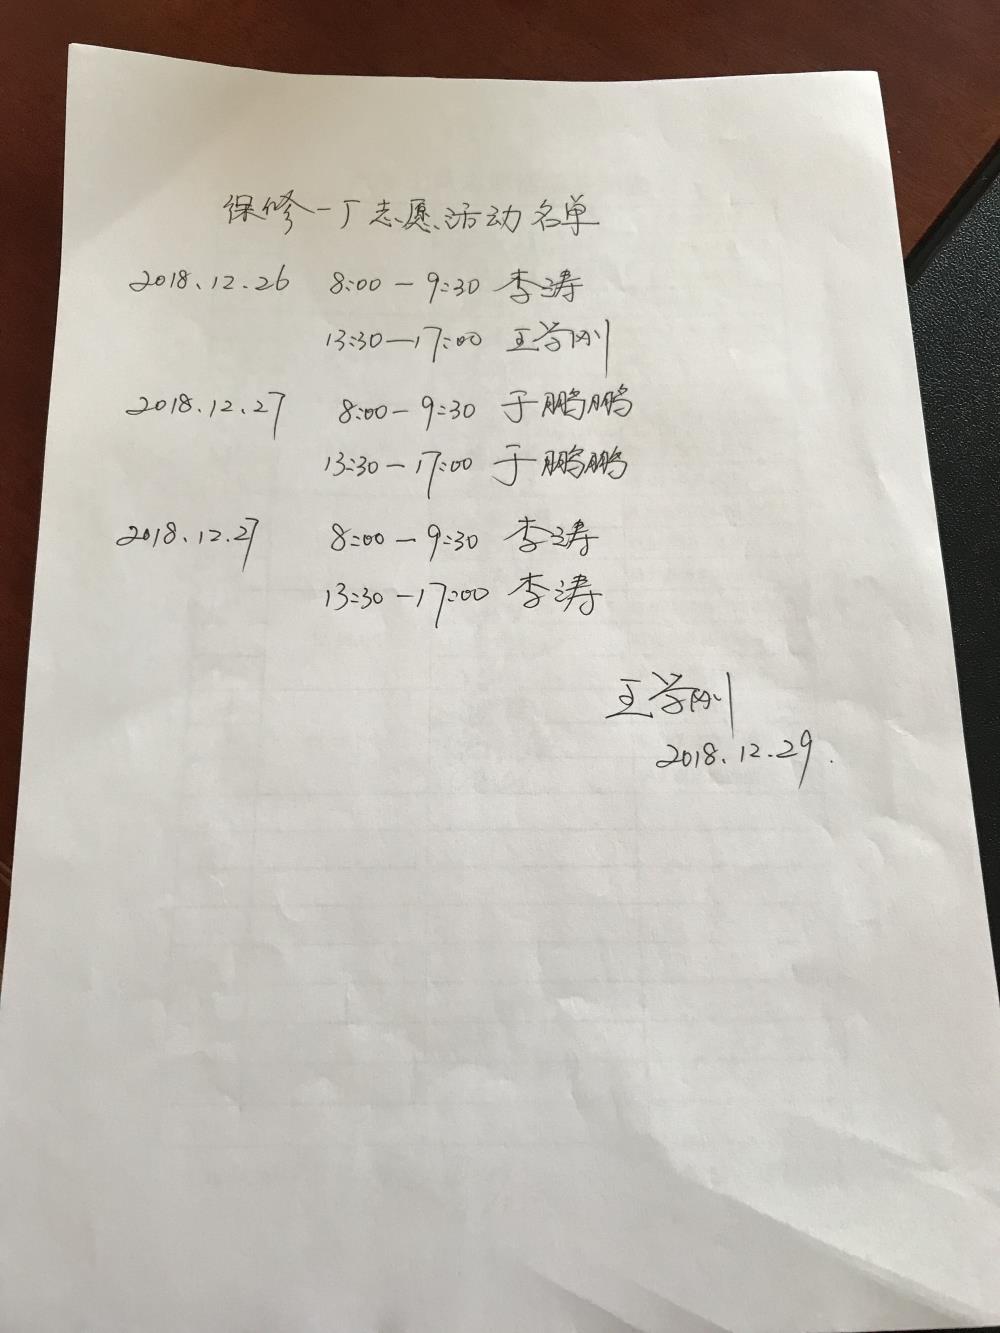 保修一厂志愿活动名单
2018.12.26 8:00-9:30 李涛
13:30-17:00 王学刚
2018.12.27 8:00-9:30 于鹏鹏
13:30-17:00 于鹏鹏
2018.12.27 8:00-9:30 李涛
13:30-17:00 李涛
王学刚
2018.12.29.